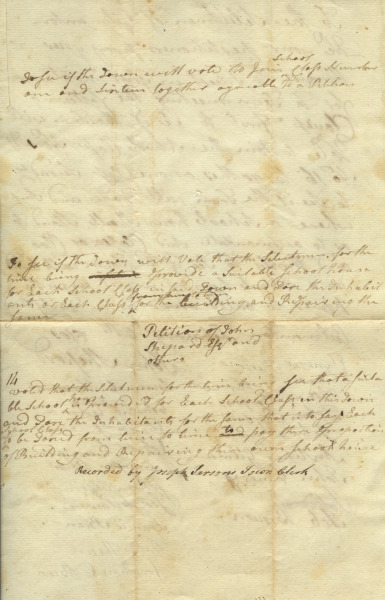 To see if the Town will vote to Join School Class Number
one and Sixteen together agreable to a Petition
To see if the Town will Vote that the Selectmen for the
time being provide a Suitable School house
for Each School Class in said Town and Dose the Inhabit
ants or Each Class for the building and Repairing the
same
Petition of John
Shepard Esqr and
others
14
Voted that the Selectmen for the time being see that a suita
ble School is Provided for Each School Class in this Town
and Dose the Inhabitants for the same that is to say Each
to be Dosed from time to time to pay their Proportion
of Building and Repairing their own School house
Recorded by Joseph Parsons Town Clerk